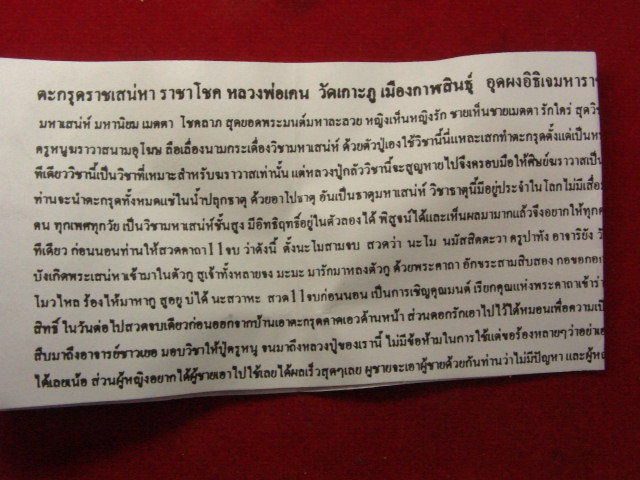 ตะกรุดราชเสน่หา ราชาโชค หลวงพ่อเคน วัดเกาะภู เมืองกาฬสินธุ์ อุดผงอิธิเจมหาราช
มหาเสน่ห์ มหานิยม เมตตา โชคลาภ สุดยอดพระมนต์มหาละลวย หญิงเห็นหญิงรัก ชายเห็นชายเมตตา รักใคร่ สุดวิ
ครูหนูฆราวาสนามอุโฆษ ลือเลื่องนามกระเดื่องวิชามหาเสน่ห์ ด้วยตัวปู่เองใช้วิชานี้นี่แหละเสกทำตะกรุดตั้งแต่เป็น
ทีเดียววิชานี้เป็นวิชาที่เหมาะสำหรับฆราวาสเท่านั้น แต่หลวงปู่กลัววิชานี้จะสูญหายไปจึงครอบมือให้ศิษย์ฆราวาสเป็น
ท่านจะนำตะกรุดทั้งหมดแช่ในน้ำปลุกธาตุ ด้วยอาโปธาตุ อันเป็นธาตุมหาเสน่ห์ วิชาธาตุนี้มีอยู่ประจำในโลกไม่มีเสื่อม
คน ทุกเพศทุกวัย เป็นวิชามหาเสน่ห์ชั้นสูง มีอิทธิฤทธิ์อยู่ในตัวลองได้ พิสูจน์ได้และเห็นผลมามากแล้วจึงอยากให้ทุกค
ทีเดียว ก่อนนอนท่านให้สวดคาถา11จบ ว่าดังนี้ ตั้งนะโมสามจบ สวดว่า นะโม นมัสสิตตะวา ครูปาทัง อาจาริยัง
บังเกิดพระเสน่หาเข้ามาในตัวกู สูเจ้าทั้งหลายจง มะมะ มารักมาหลงตัวกู ด้วยพระคาถา อักขระสามสิบสอง กอขอกอกา
โมวไหล ร้องไห้มาหากู สูอยู่ บ่ได้ นะสวาหะ สวด11จบก่อนนอน เป็นการเชิญคุณมนต์ เรียกคุณแห่งพระคาถาเข้าร่า
สิทธิ์ ในวันต่อไปสวดจบเดียวก่อนออกจากบ้านเอาตะกรุดคาดเอวด้านหน้า ส่วนดอกรักเอาไปไว้ใต้หมอนเพื่อความเป็
สืบมาถึงอาจารย์ชาวเยอ มอบวิชาให้ปู่ครูหนู จนมาถึงหลวงปู่ของเรานี้ ไม่มีข้อห้ามในการใช้แต่ขอร้องหลายๆว่าอย่าเอ
ได้เลยเน้อ ส่วนผู้หญิงอยากได้ผู้ชายเอาไปใช้เลยได้ผลเร็วสุดๆเลย ผู้ชายจะเอาผู้ชายด้วยกันท่านว่าไม่มีปัญหา และผู้ห